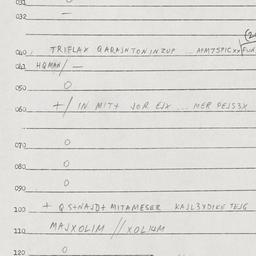 031 0
032 –
040 TRIFLAX QARASHTONINZUP ... AMM7SPICXX FUN
041 HQMAN/ –
050 0
060 +/ IN MIT+ JOR EJX ... MER PEJS3X
070 0
080 0
090 0
100 + QS+NAJD+ MITAMESER KAJL3YDIKE TEJG
110 MAJXOLIM // XOLIUM
120 0